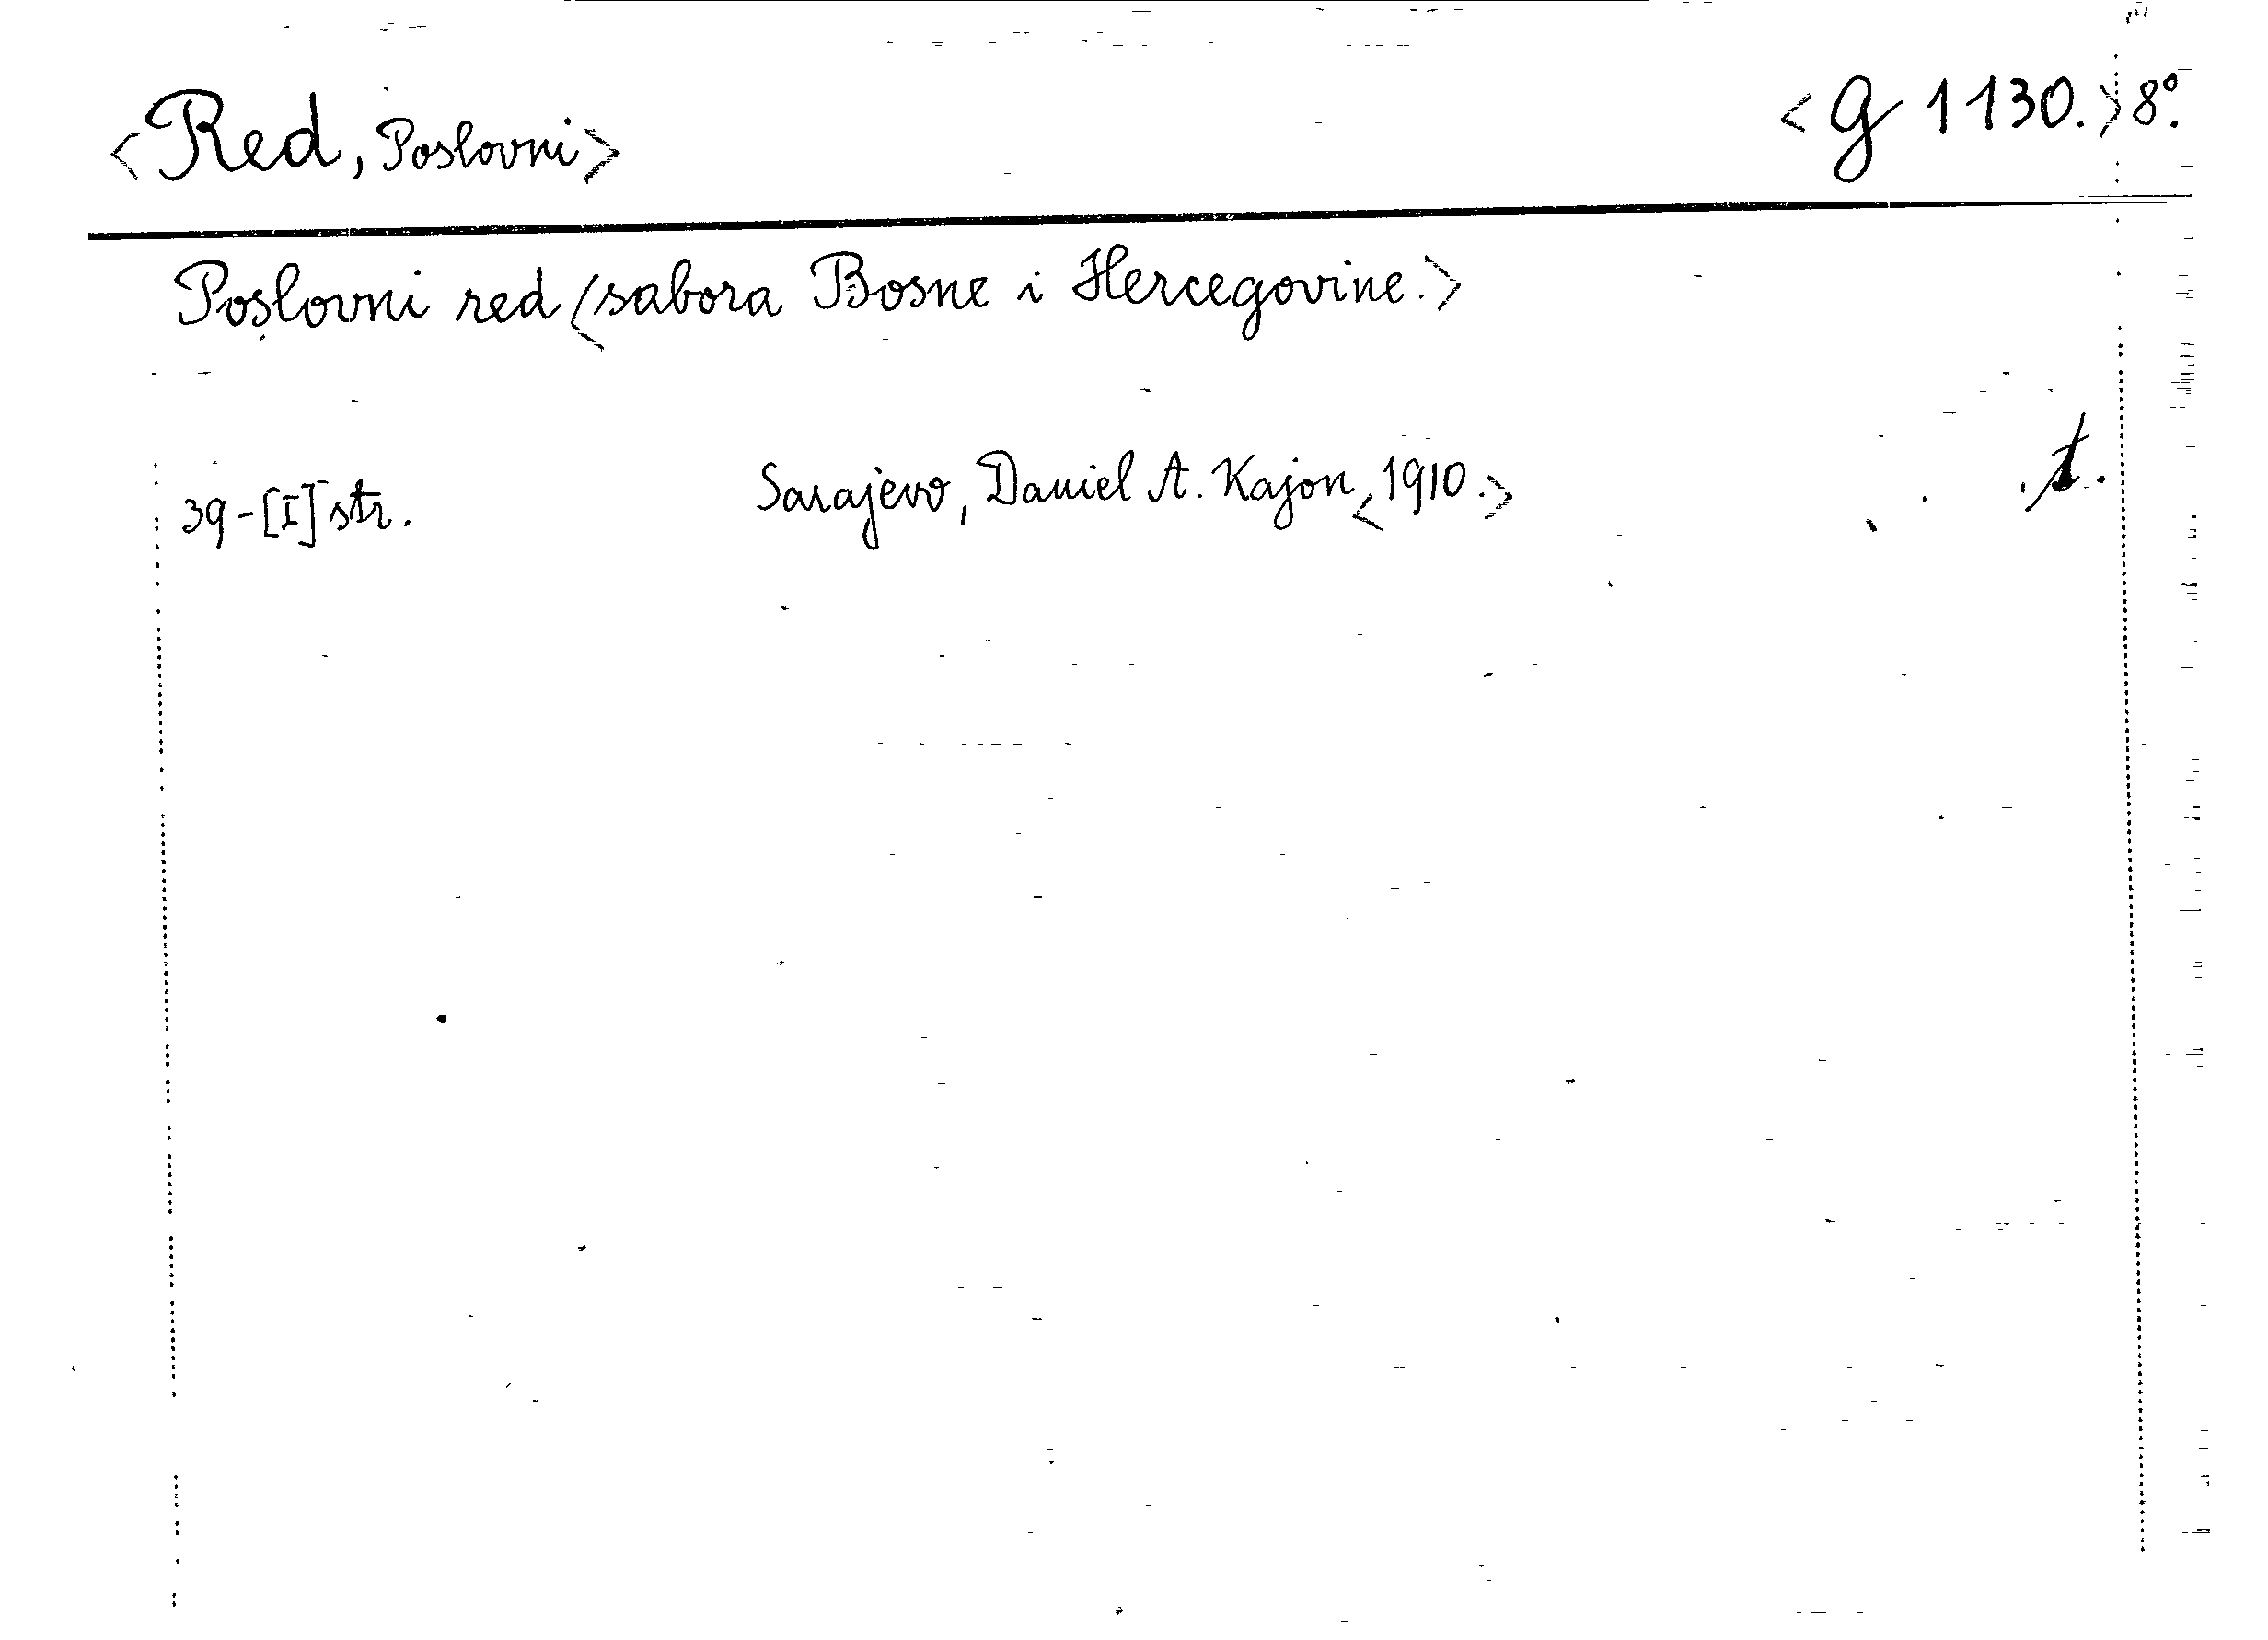 <Red, Poslovni> <g 1130.> 8º.
Poslovni red <sabora Bosne i Hercegovine.>
Sarajevo, Daniel A. Kajon <1910.>
39-[I] str.